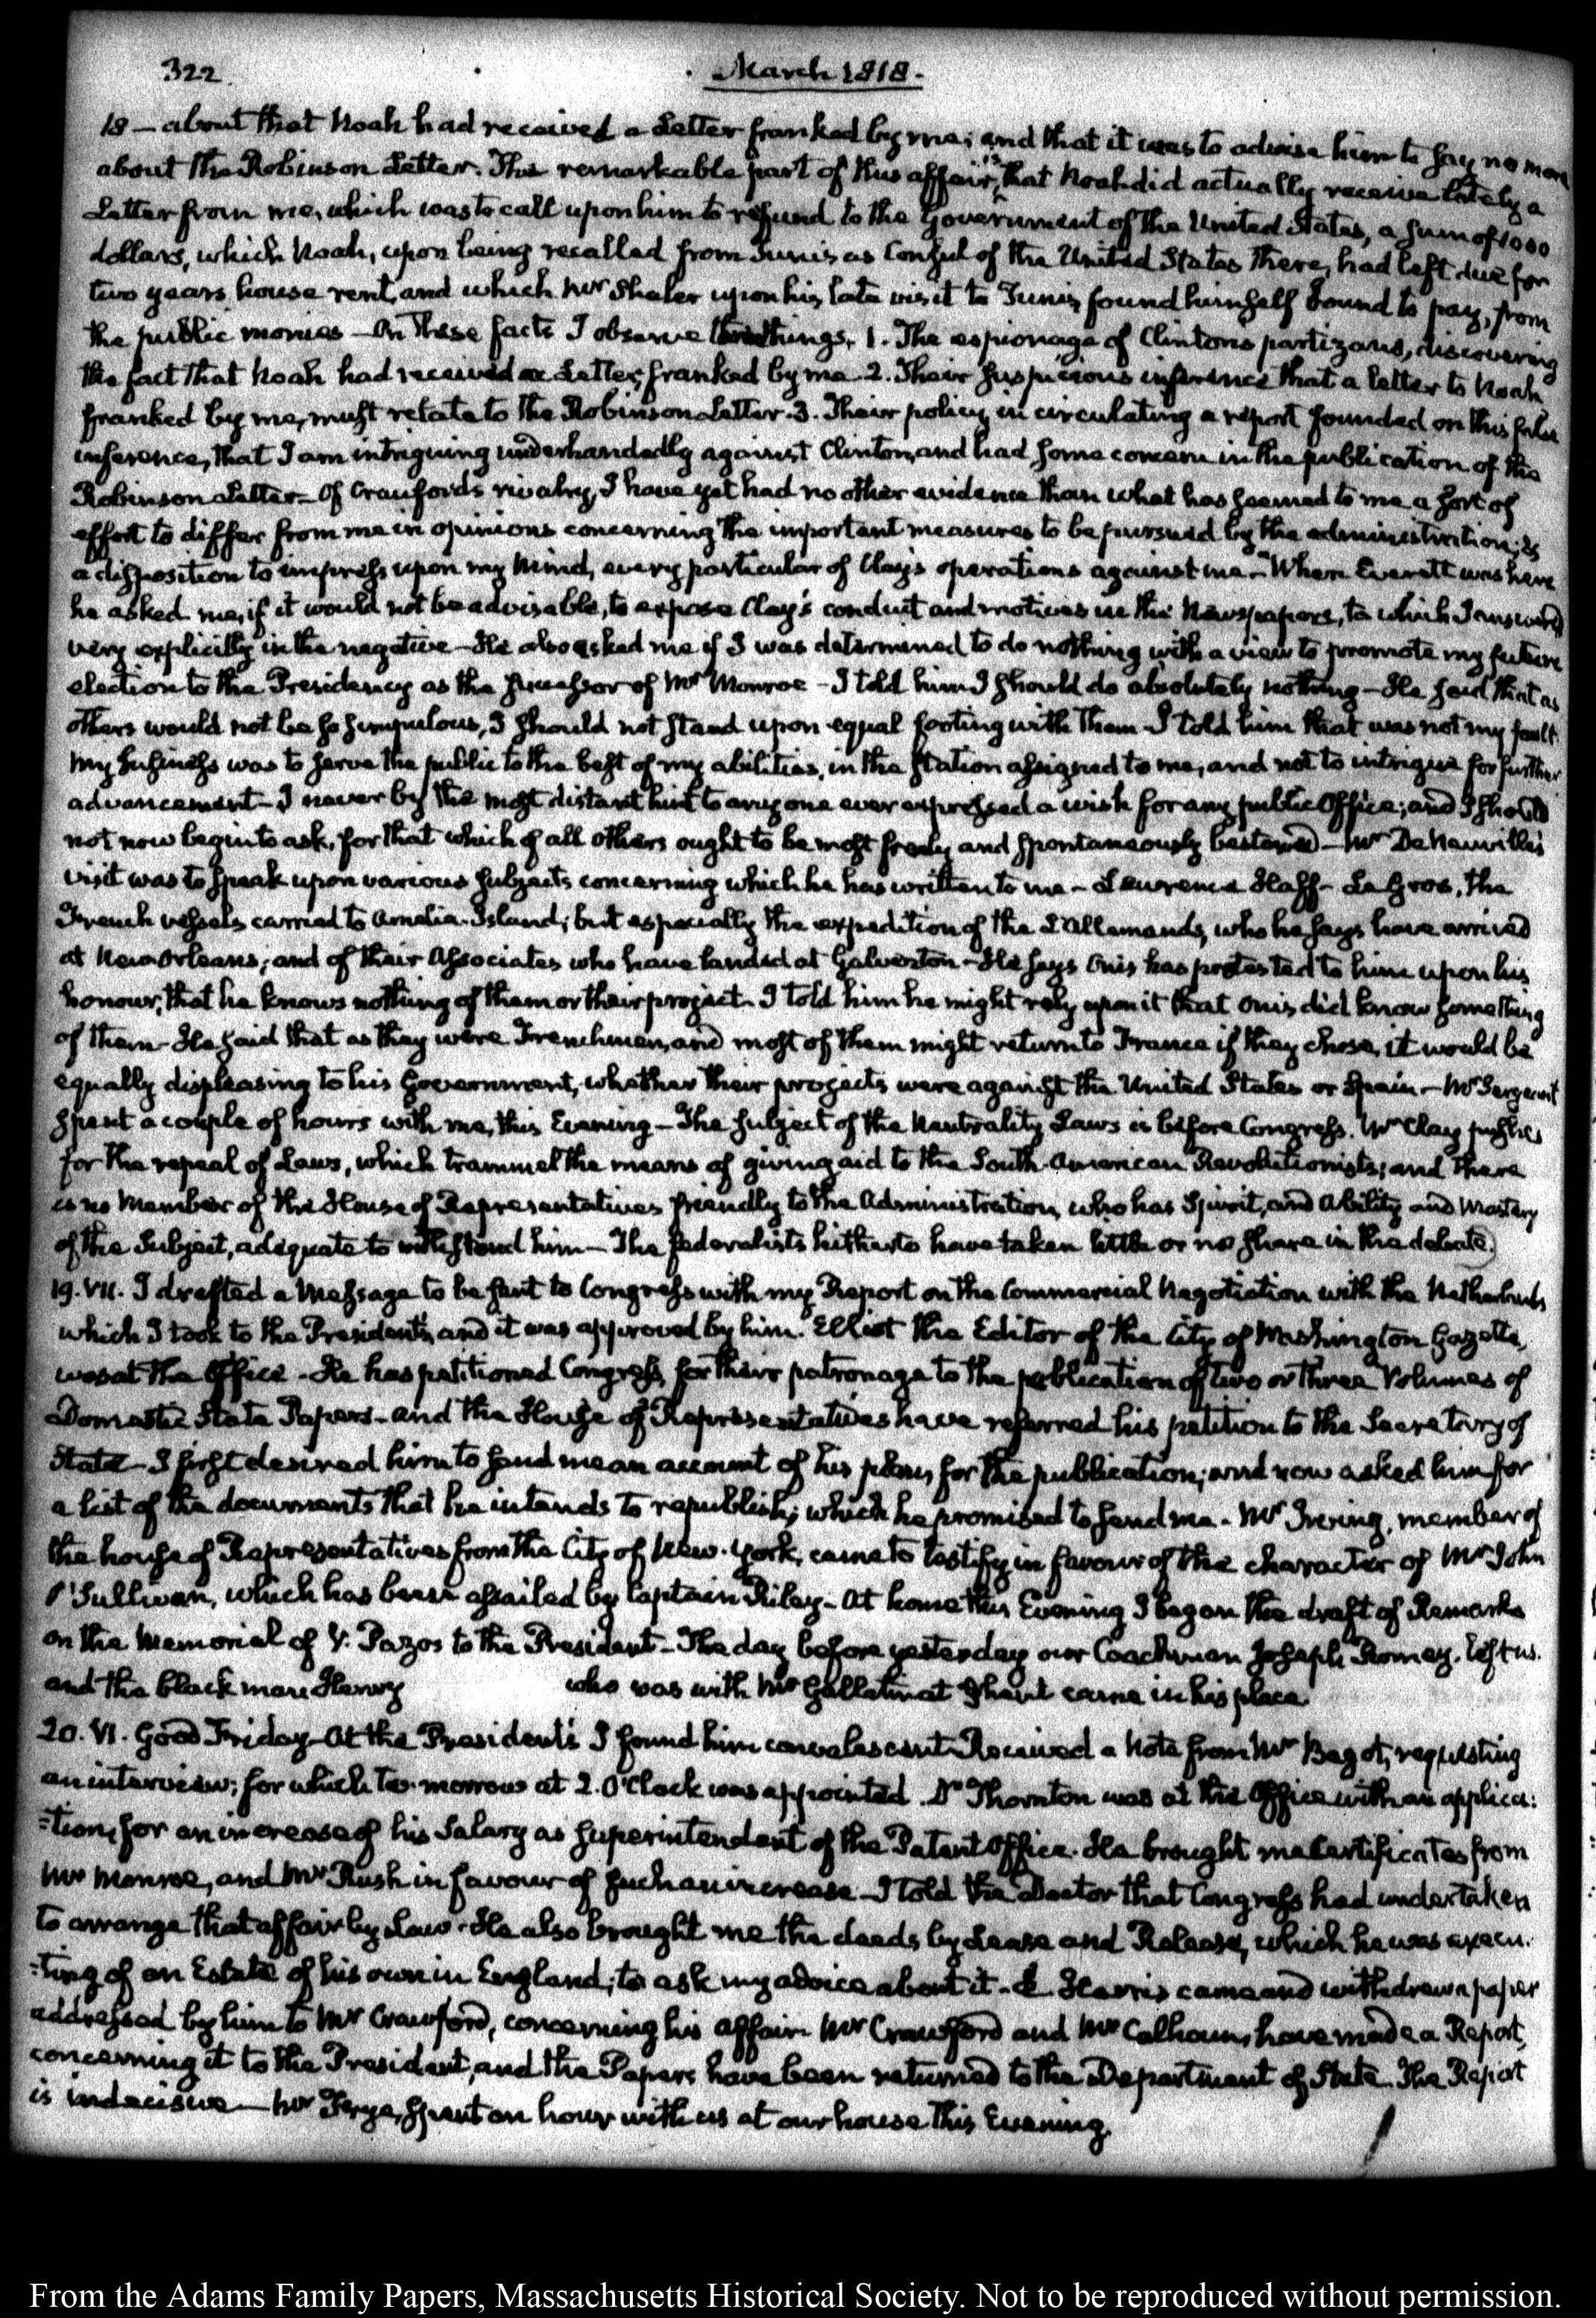 322
March 1818.
18 — about that Noah had received a Letter franked by me; and that it was to advise him to say no more
about the Robinson Letter. The remarkable part of this affair is, that Noah did actually receive lately a
Letter from me, which was to call upon him to refund to the Government of the United States, a sum of 1000
dollars, which Noah, upon being recalled from Tunis as Consul of the United States there, had left due for
two years house rent, and which Mr Shaler upon his late visit to Tunis found himself bound to pay, from
the public monies — On these facts I observe things. 1. The espionage of Clinton's partizans, discovering
the fact that Noah had received a Letter, franked by me. 2. Their suspicious inference that a letter to Noah
franked by me, must relate to the Robinson Letter. 3. Their policy in circulating a report founded on this false
inference, that I am intriguing underhandedly against Clinton, and had some concern in the publication of the
Robinson Letter — Of Crawford's rivalry, I have yet had no other evidence than what has seemed to me a sort of
effort to differ from me in opinions concerning the important measures to be pursued by the administration; &
a disposition to impress upon my Mind, every particular of Clay's operations against me — When Everett was here
he asked me, if it would not be advisable, to expose Clay's conduct and motives in the Newspapers, to which I answered
very explicitly in the negative — He also asked me if I was determined to do nothing with a view to promote my future
election to the Presidency as the successor of Mr Monroe — I told him I should do absolutely nothing — He said that as
others would not be so scrupulous, I should not stand upon equal footing with them — I told him that was not my fault.
My business was to serve the public to the best of my abilities, in the station assigned to me, and not to intrigue for further
advancement — I never by the most distant hint to any one ever expressed a wish for any public Office; and I should
not now begin to ask, for that which of all others ought to be most freely and spontaneously bestowed — Mr De Neuville's
visit was to speak upon various subjects concerning which he has written to me — Lawrence Staff — Le Gros, the
French vessels carried to Amelia-Island; but especially the expedition of the L'Allemands, who he says have arrived
at New Orleans; and of their Associates who have landed at Galveston — He says Onis has protested to him upon his
honour, that he knows nothing of them or their project. I told him he might rely upon it that Onis did know something
of them — He said that as they were Frenchmen, and most of them might return to France if they chose, it would be
equally displeasing to his Government, whether their projects were against the United States or Spain — Mr Sergeant
spent a couple of hours with me, this Evening — The subject of the Neutrality Laws is before Congress. Mr Clay pushes
for the repeal of Laws, which trammel the means of giving aid to the South-American Revolutionists; and there
is no Member of the House of Representatives friendly to the Administration, who has Spirit, and Ability and Mastery
of the Subject, adequate to withstand him — The federalists hitherto have taken little or no share in the debate.
19. VII. I drafted a Message to be sent to Congress with my Report on the Commercial Negotiation with the Netherlands
which I took to the President's, and it was approved by him. Elliot the Editor of the City of Washington Gazette,
was at the Office — He has petitioned Congress, for their patronage to the publication of two or three Volumes of
Domestic State Papers — and the House of Representatives have referred his petition to the Secretary of
State — I first desired him to send me an account of his plan, for the publication; and now asked him for
a list of the documents that he intends to republish; which he promised to send me — Mr Irving, member of
the house of Representatives from the City of New-York, came to testify in favour of the character of Mr John
O'Sullivan, which has been assailed by Captain Riley — At home this Evening I began the draft of Remarks
on the Memorial of V. Pazos to the President — The day before yesterday our Coachman Joseph Romey, left us.
and the black man Henry who was with Mr Gallatin at Ghent came in his place.
20. VI. Good Friday — At the President's I found him convalescent — Received a Note from Mr Bagot, requesting
an interview; for which to-morrow at 2. O'Clock was appointed. Dr Thornton was at the Office with an applica:
:tion, for an increase of his Salary as Superintendent of the Patent Office. He brought me Certificates from
Mr Monroe, and Mr Rush in favour of such an increase — I told the Doctor that Congress had undertaken
to arrange that affair by Law. He also brought me the deeds, by Lease and Release, which he was execu:
:ting of an Estate of his own in England; to ask my advice about it — Harris came and withdrew a paper
addressed by him to Mr Crawford, concerning his affair. Mr Crawford and Mr Calhoun, have made a Report,
concerning it to the President, and the Papers have been returned to the Department of State. The Report
is indecisive — Mr Frye, spent an hour with us at our house this Evening.
From the Adams Family Papers, Massachusetts Historical Society. Not to be reproduced without permission.